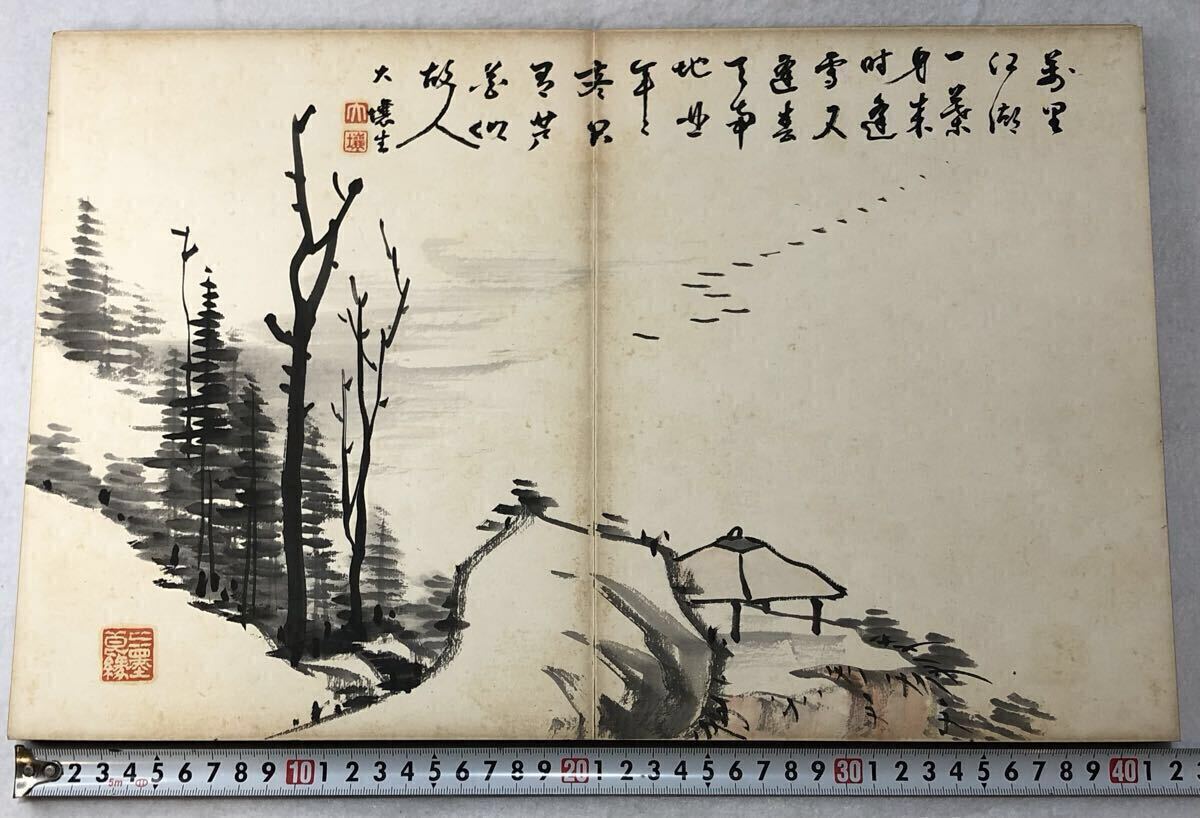 萬里
江湖
一葉
身来
时逢
雪又
逢春
天南
地北
年々
客只
有芦
花似
故人
大壤生
大
壤
2 3 4 5 6 7 8 9 10 1 2 3 4 5 6 7 8 9 20 1 2 3 4 5 6 7 8 9 30 1 2 3 4 5 6 7 8 9 40 1 2
5m